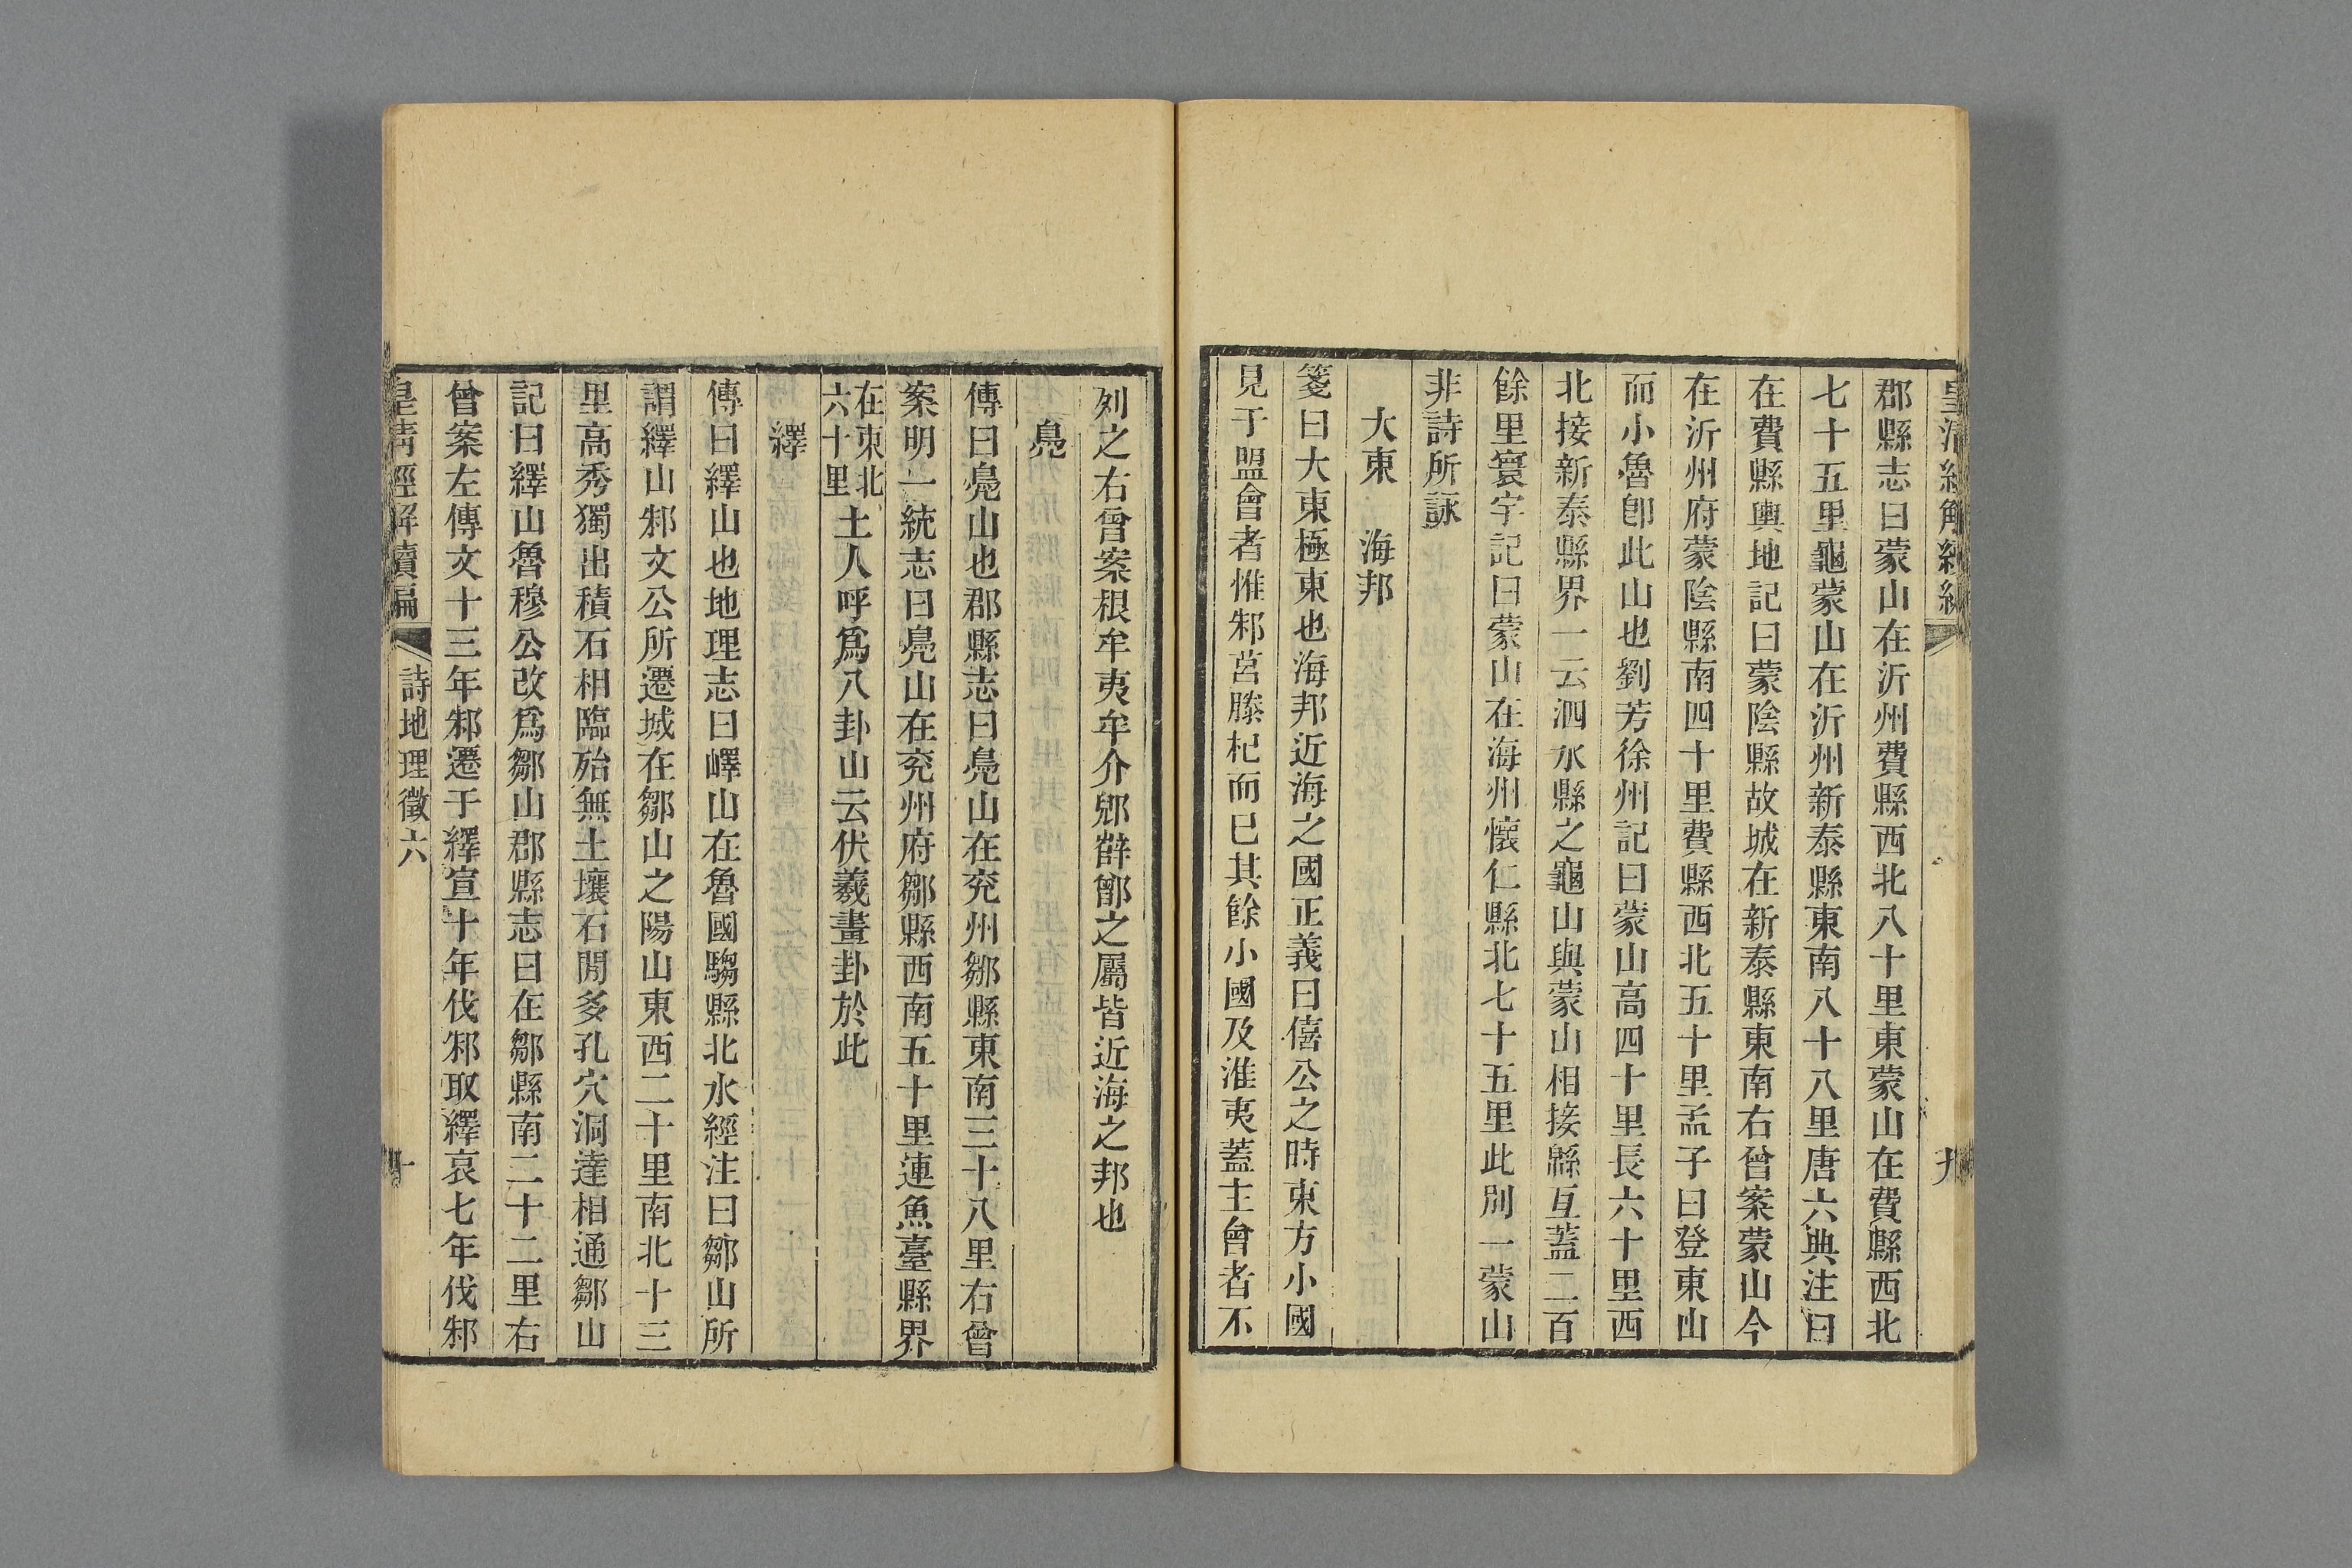 郡縣志曰蒙山在沂州費縣西北八十里東蒙山在費縣西北
七十五里龜蒙山在沂州新泰縣東南八十八里唐六典注曰
在費縣輿地記曰蒙陰縣故城在新泰縣東南右曾案蒙山今
在沂州府蒙陰縣南四十里費縣西北五十里孟子曰登東山
而小魯卽此山也劉芳徐州記曰蒙山高四十里長六十里西
北接新泰縣界一云泗水縣之龜山與蒙山相接緜亙蓋二百
餘里寰宇記曰蒙山在海州懷仁縣北七十五里此別一蒙山
非詩所詠
大東　海邦
箋曰大東極東也海邦近海之國正義曰僖公之時東方小國
見于盟會者惟邾莒滕杞而已其餘小國及淮夷蓋主會者不
列之右曾案根牟夷牟介郯鄣之屬皆近海之邦也
鳧
傳曰鳧山也郡縣志曰鳧山在兖州鄒縣東南三十八里右曾
案明一統志曰鳧山在兖州府鄒縣西南五十里連魚臺縣界
在東北六十里土人呼爲八卦山云伏羲畫卦於此
繹
傳曰繹山也地理志曰嶧山在魯國騶縣北水經注曰鄒山所
謂繹山邾文公所遷城在鄒山之陽山東西二十里南北十三
里高秀獨出積石相臨殆無土壤石閒多孔穴洞達相通鄒山
記曰繹山魯穆公改爲鄒山郡縣志曰在鄒縣南二十二里右
曾案左傳文十三年邾遷于繹宣十年伐邾取繹哀七年伐邾
皇淸經解續編　詩地理徵六　十